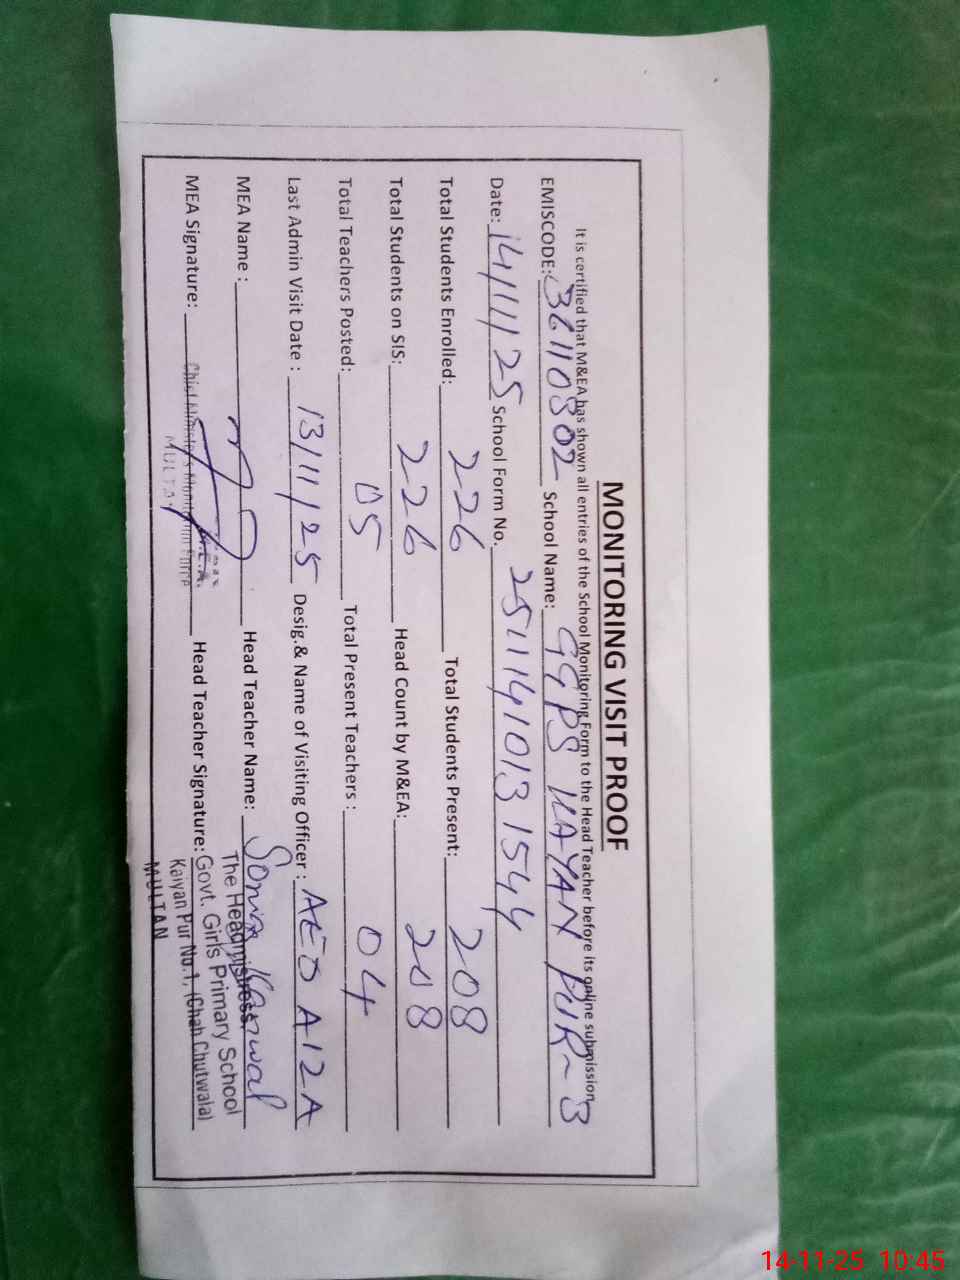 MONITORING VISIT PROOF
It is certified that M&EA has shown all entries of the School Monitoring Form to the Head Teacher before its online submission
EMISCODE: 36110802 School Name: GGPS KAYAN PUR-3
Date: 14/11/25 School Form No. 2511141013 1544
Total Students Enrolled: 226 Total Students Present: 208
Total Students on SIS: 226 Head Count by M&EA: 208
Total Teachers Posted: 05 Total Present Teachers : 04
Last Admin Visit Date : 13/11/25 Desig.& Name of Visiting Officer : AEO
MEA Name : Head Teacher Name: Sonia Kanwal
MEA Signature: Head Teacher Signature:
M.E.A.
Chief Minister's Monitoring Force
MULTAN
The Headmistress,
Govt. Girls Primary School
Kaiyan Pur No.1, (Chah Chutwala)
MULTAN
14-11-25 10:45